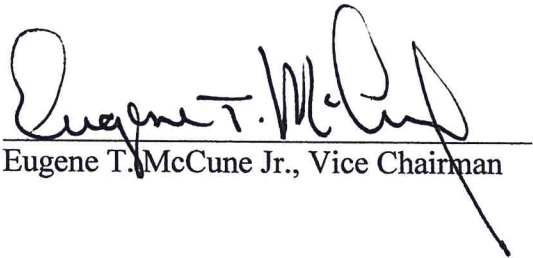 Eugene T. McCune
Eugene T. McCune Jr., Vice Chairman